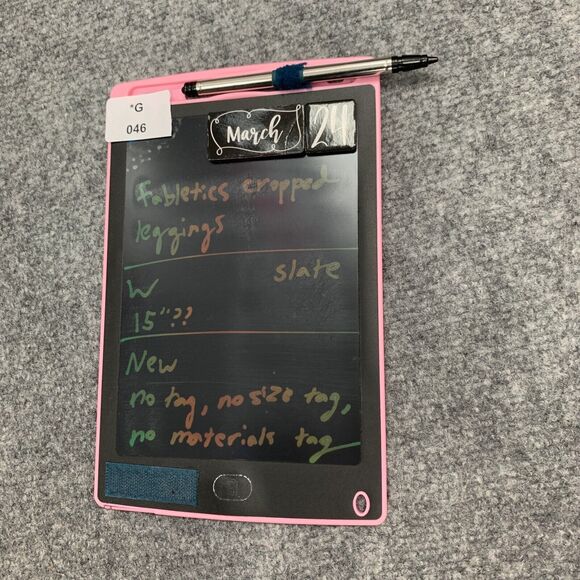 *G
046
March 24
Fabletics cropped
leggings
slate
W
15"??
New
no tag, no size tag,
no materials tag